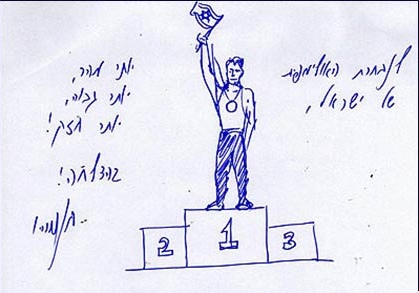 לנבחרת האולימפית
של ישראל,
יותר מהר,
יותר גבוה,
יותר חזק!
בהצלחה!
2
1
3